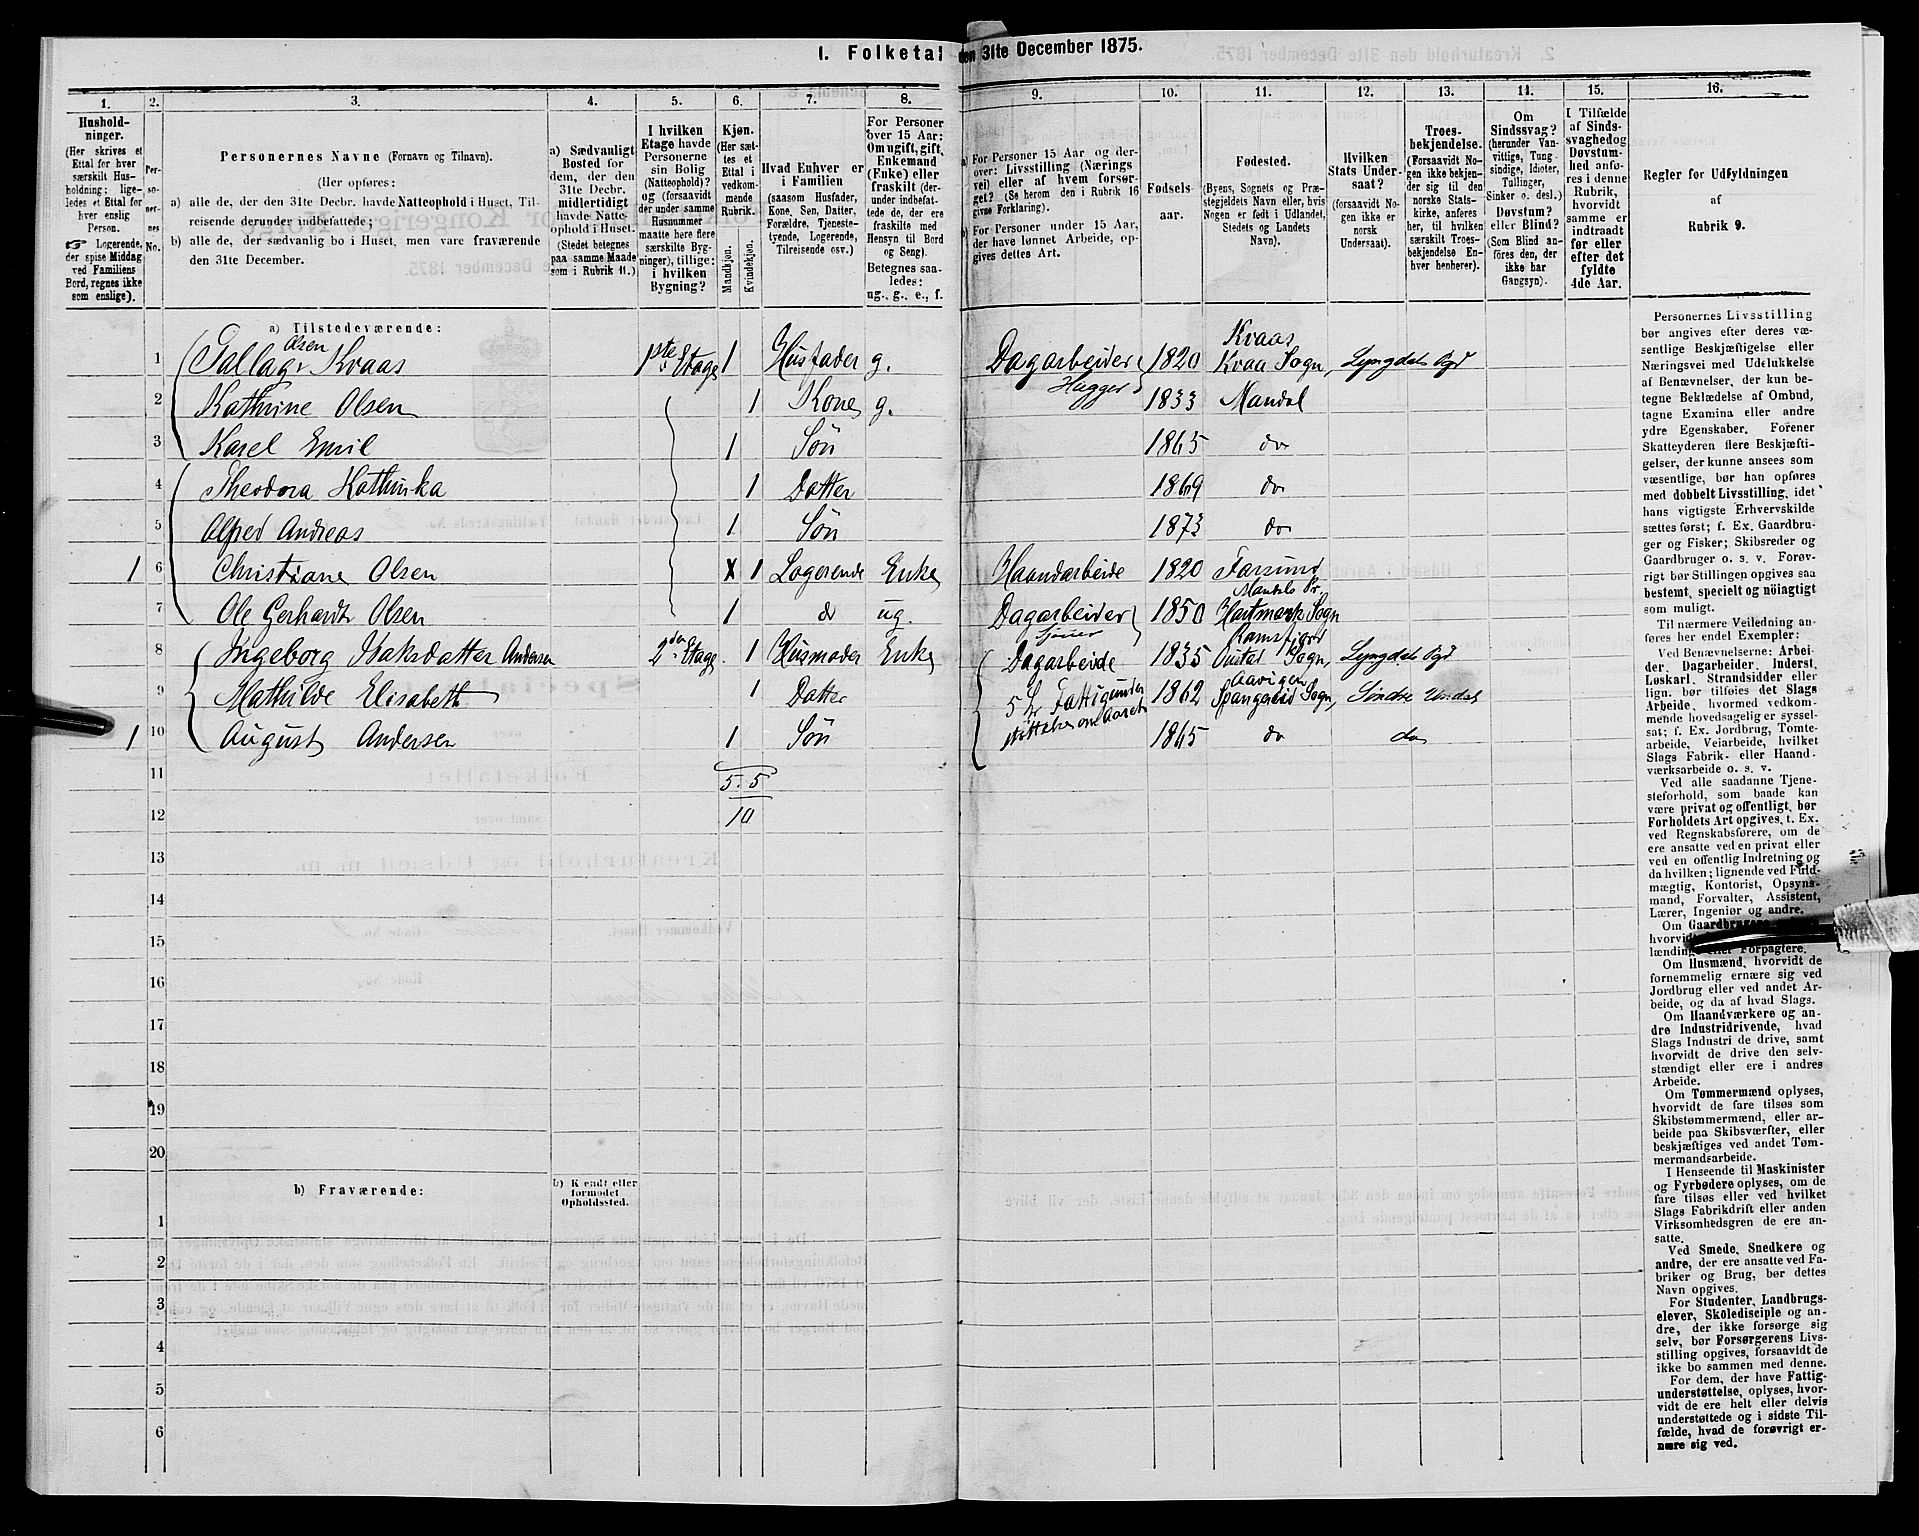 1. Folketal den 31te December 1875.
1. 2. 3. 4. 5. 6. 7. 8. 9. 10. 11. 12. 13. 14. 15. 16.
Hushold-
ninger.
(Her skrives et
Ettal for hver
særskilt Hus-
holdning; lige-
ledes et Ettal for
hver enslig
Person.
☞ Logerende,
der spise Middag
ved Familiens
Bord, regnes ikke
som enslige).
Per-
so-
ner-
nes
No.
Personernes Navne (Fornavn og Tilnavn).
(Her opføres:
a) alle de, der den 31te Decbr. havde Natteophold i Huset, Til-
reisende derunder indbefattede;
b) alle de, der sædvanlig bo i Huset, men vare fraværende
den 31te December.
a) Sædvanligt
Bosted for
dem, der den
31te Decbr.
midlertidigt
havde Natte-
ophold i Huset.
(Stedet betegnes
paa samme Maade
som i Rubrik 11.)
I hvilken
Etage havde
Personerne
sin Bolig
(Natteophold)?
(og forsaavidt
der under samme
Husnummer
maatte høre flere
særskilte Byg-
ninger), tillige:
i hvilken
Bygning?
Kjøn.
(Her sæt-
tes et
Ettal i
vedkom-
mende
Rubrik.
Mandkjøn.
Kvindekjøn.
Hvad Enhver er
i Familien
(saasom Husfader,
Kone, Søn, Datter,
Forældre, Tjeneste-
tyende, Logerende,
Tilreisende osv.)
For Personer
over 15 Aar:
Om ugift, gift,
Enkemand
(Enke) eller
fraskilt (der-
under indbefat-
tede de, der ere
fraskilte med
Hensyn til Bord
og Seng).
Betegnes saa-
ledes:
ug., g., e., f.
a) For Personer 15 Aar og der-
over: Livsstilling (Nærings
vei) eller af hvem forsør-
get? (Se herom den i Rubrik 16
givne Forklaring).
b) For Personer under 15 Aar,
der have lønnet Arbeide, op-
gives dettes Art.
Fødsels-
aar.
Fødested.
(Byens, Sognets og Præ-
stegjeldets Navn eller, hvis
Nogen er født i Udlandet,
Stedets og Landets
Navn).
Hvilken
Stats Under-
saat?
(forsaavidt No-
gen ikke er
norsk
Undersaat).
Troes-
bekjendelse.
(Forsaavidt No-
gen ikke bekjen-
der sig til den
norske Stats-
kirke, anføres
her, til hvilken
særskilt Troes-
bekjendelse En-
hver henhører).
Om
Sindssvag?
(herunder Van-
vittige, Tung-
sindige, Idioter,
Tullinger,
Sinker o. desl.)
Døvstum?
eller Blind?
(Som Blind an-
føres den, der
ikke har
Gangsyn).
I Tilfælde
af Sinds-
svaghedog
Døvstum-
hed anfø-
res i denne
Rubrik,
hvorvidt
samme er
indtraadt
før eller
efter det
fyldte
4de Aar.
Regler for Udfyldningen
af
Rubrik 9.
a) Tilstedeværende:
1 Tallag Olsen Kvaas 1ste Etage 1 Husfader g. Dagarbeider Hugger 1820 Kvaas Kvaa Sogn, Lyngdals Pgd
2 Kathrine Olsen 1 Kone g. 1833 Mandal
3 Karel Emil 1 Søn 1865 do
4 Theodora Kathinka 1 Datter 1869 do
5 Alfred Andreas 1 Søn 1873 do
1 6 Christiane Olsen 1 Logerende Enke Haandarbeide 1820 Farsund
7 Ole Gerhardt Olsen 1 d ug. Dagarbeider 1850 Mandals Pr. Hartmark Sogn
8 Ingeborg Isaksdatter Andersen 2den Etage 1 Husmoder Enke Dagarbeide 1835 Sogn, Lyngdals Pgd
9 Mathilde Elisabeth 1 Datter 5 Fattigunder 1862 Spangereid Sogn, Søndre Undal
støttelse om Aaret
1 10 August Andersen 1 Søn 1865 do do
11 5. 5
12 10
13
14
15
16
17
18
19
20
b) Fraværende:
b) Kjendt eller
formodet
Opholdssted.
1
2
3
4
5
6
Personernes Livsstilling
bør angives efter deres væ-
sentlige Beskjæftigelse eller
Næringsvei med Udelukkelse
af Benævnelser, der kun be-
tegne Beklædelse af Ombud,
tagne Examina eller andre
ydre Egenskaber. Forener
Skatteyderen flere Beskjæfti-
gelser, der kunne ansees som
væsentlige, bør han opføres
med dobbelt Livsstilling, idet
hans vigtigste Erhvervskilde
sættes først; f. Ex. Gaardbru-
ger og Fisker; Skibsreder og
Gaardbruger o. s. v. Forøv-
rigt bør Stillingen opgives saa
bestemt, specielt og nöiagtigt
som muligt.
Til nærmere Veiledning an-
føres her endel Exempler:
Ved Benævnelserne: Arbei-
der, Dagarbeider, Inderst,
Løskarl, Strandsidder eller
lign. bør tilføies det Slags
Arbeide, hvormed vedkom-
mende hovedsagelig er syssel-
sat; f. Ex. Jordbrug, Tomte-
arbeide, Veiarbeide, hvilket
Slags Fabrik- eller Haand-
værksarbeide o. s. v.
Ved alle saadanne Tjene-
steforhold, som baade kan
være privat og offentligt, bør
Forholdets Art opgives, t. Ex.
ved Regnskabsførere, om de
ere ansatte ved en privat eller
ved en offentlig Indretning og
da hvilken; lignende ved Fuld-
mægtig, Kontorist, Opsyns-
mand, Forvalter, Assistent,
Lærer, Ingeniør og andre.
Om Gaardbrugere
hvorvidt
lænding eller Forpagtere.
Om Husmænd, hvorvidt de
fornemmelig ernære sig ved
Jordbrug eller ved andet Ar-
beide, og da af hvad Slags.
Om Haandværkere og an-
dre Industridrivende, hvad
Slags Industri de drive, samt
hvorvidt de drive den selv-
stændigt eller ere i andres
Arbeide.
Om Tømmermænd oplyses,
hvorvidt de fare tilsøs som
Skibstømmermænd, eller ar-
beide paa Skibsværfter, eller
beskjæftiges ved andet Tøm-
mermandsarbeide.
I Henseende til Maskinister
og Fyrbødere oplyses, om de
fare tilsøs eller ved hvilket
Slags Fabrikdrift eller anden
Virksomhedsgren de ere an-
satte.
Ved Smede, Snedkere og
andre, der ere ansatte ved Fa-
briker og Brug, bør dettes
Navn opgives.
For Studenter, Landbrugs-
elever, Skoledisciple og an-
dre, der ikke forsørge sig
selv, bør Forsørgerens Livs-
stilling opgives, forsaavidt de
ikke bo sammen med denne.
For dem, der have Fattig-
understøttelse, oplyses, hvor-
vidt de ere helt eller delvis
understøttede og i sidste Til-
fælde, hvad de forøvrigt er-
nære sig ved.